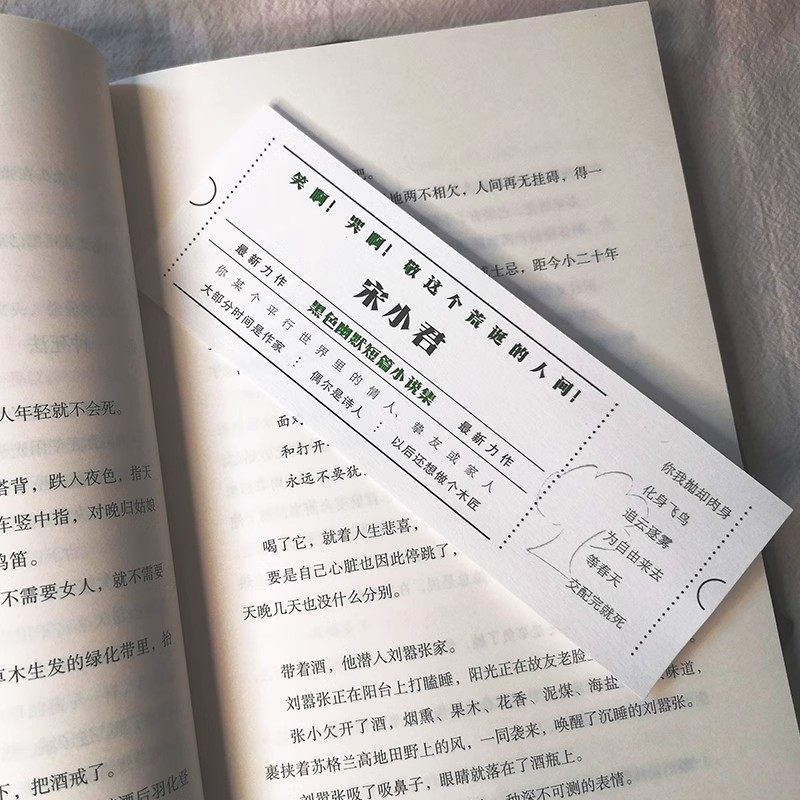 人年轻就不会死。
搭背，跌入夜色，指天
车竖中指，对晚归姑娘
鸣笛。
不需要女人，就不需要
草木生发的绿化带里，抬
下，把酒戒了。
酒后羽化登
地两不相欠，人间再无挂碍，得一
士忌，距今小二十年
笑啊！哭啊！敬这个荒诞的人间！
宋小君
最新力作 黑色幽默短篇小说集 最新力作
你某个平行世界里的情人、挚友或家人
大部分时间是作家 ⋮ 偶尔是诗人 ⋮ 以后还想做个木匠
你我抛却肉身
化身飞鸟
追云逐雾
为自由来去
等春天
交配完就死
和打开
永远不要犹
喝了它，就着人生悲喜，
要是自己心脏也因此停跳了，
天晚几天也没什么分别。
带着酒，他潜入刘嚣张家。
刘嚣张正在阳台上打瞌睡，阳光正在故友老脸
张小欠开了酒，烟熏、果木、花香、泥煤、海盐 味道，
裹挟着苏格兰高地田野上的风，一同袭来，唤醒了沉睡的刘嚣张。
刘嚣张吸了吸鼻子，眼睛就落在了酒瓶上。
种深不可测的表情。